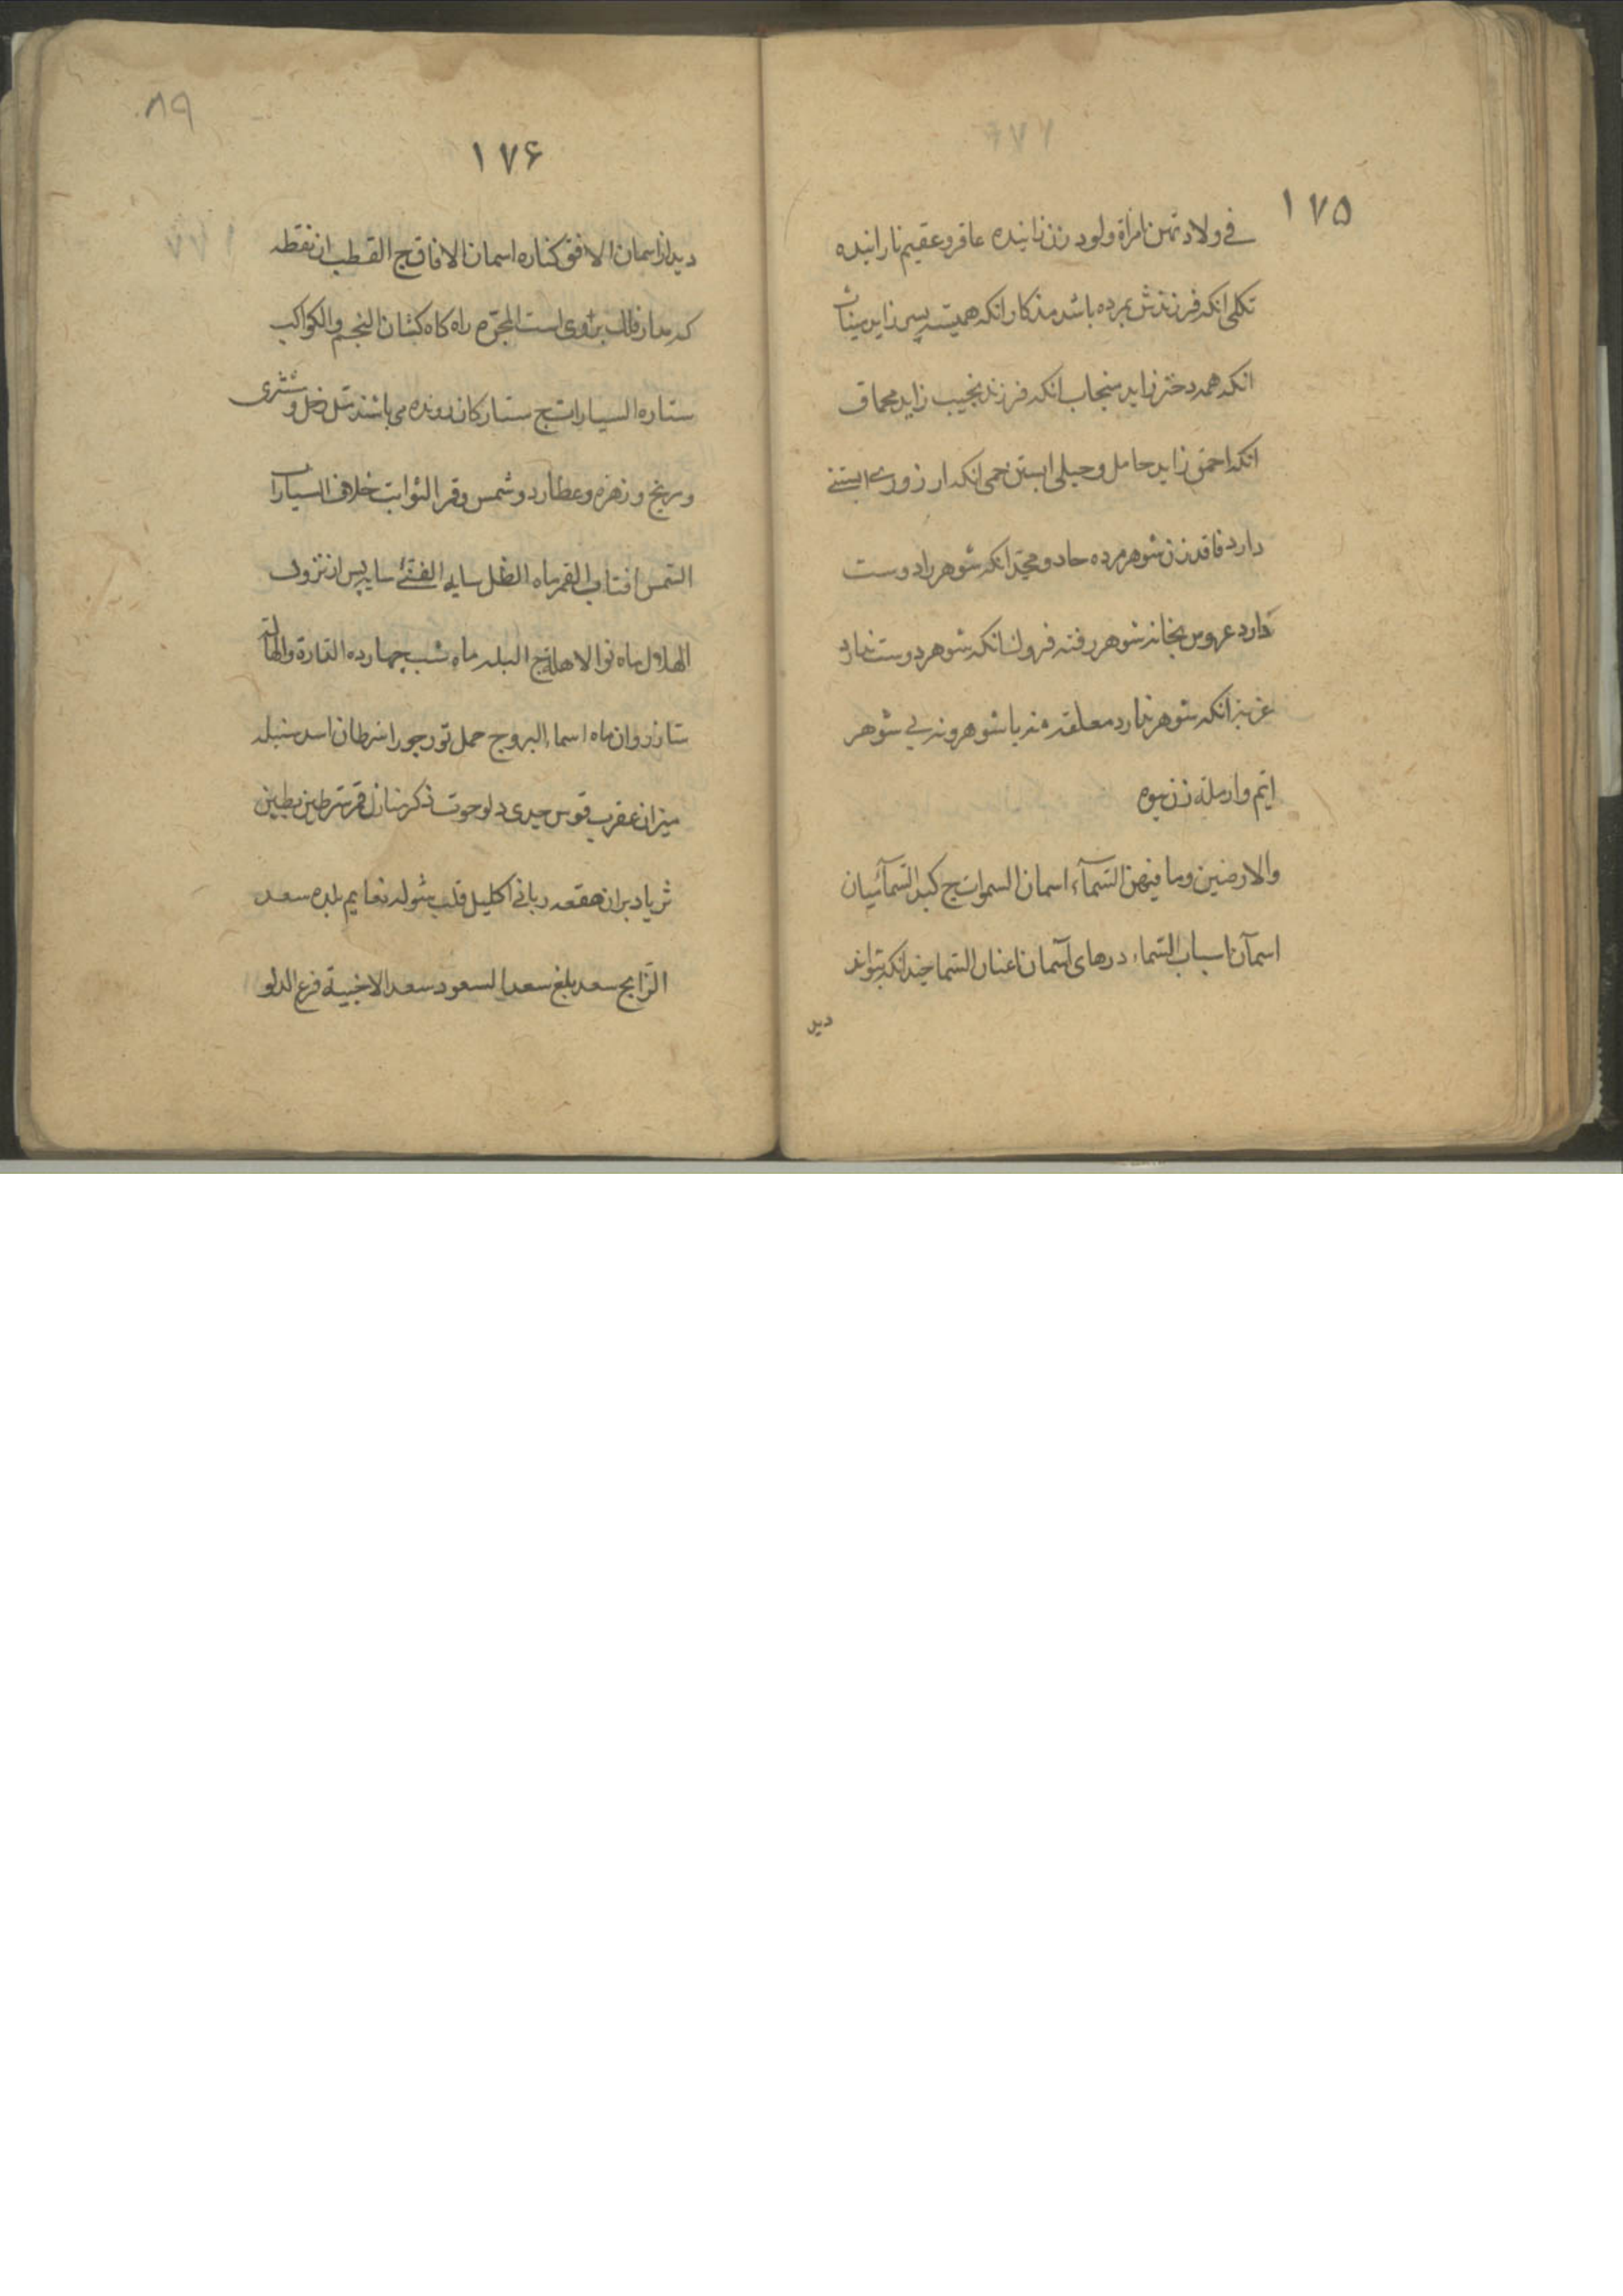 ۱۷۵
في ولادتهن امرأة ولود زن زاینده عاقر و عقیم نازاینده
ثکلی انکه فرزندش بمرده باشد مذکار انکه همیشه پسر زاید میناث
انکه همه دختر زاید منجاب انکه فرزند نجیب زاید محماق
انکه احمق زاید حامل و حبلی ابستن وحمی انکه ارزوی ابستنی
دارد فاقد زن شوهر مرده حاد و محد انکه شوهر را دوست
دارد عروس بخانه شوهر رفته فروک انکه شوهر دوست ندارد
عزبه انکه شوهر ندارد معلقه نه با شوهر و نه بی شوهر
ایم و ارملة زن بیوه
والارضین وما فیهن السمآء اسمان السموات ج کبد السماء میان
اسمان اسباب السماء درهای آسمان اعنان السما چندانکه بتواند
دید
۸۹
۱۷۶
دید از اسمان الافق کناره اسمان الافاق ج القطب ان نقطه
که مدار فلک بروی است المجره راه کاه کشان النجم والکواکب
ستاره السیارات ج ستارکان رونده می باشند مثل زحل و مشتری
و مریخ و زهره و عطارد و شمس و قمر الثوابت خلاف السیارات
الشمس افتاب القمر ماه الظل سایه الفئ سایه پس از
الهلال ماه نو الاهلة ج البدر ماه شب چهارده والهالة
ماه اسماء البروج حمل ثور جوزا سرطان اسد سنبله
میزان عقرب قوس جدی دلو حوت ذکر منازل قمر شرطین بطین
ثریا دبران هقعه زبانی اکلیل قلب شوله نعایم بلده سعد
الذابح سعد بلع سعد السعود سعد الاخبیة فرع الدلو